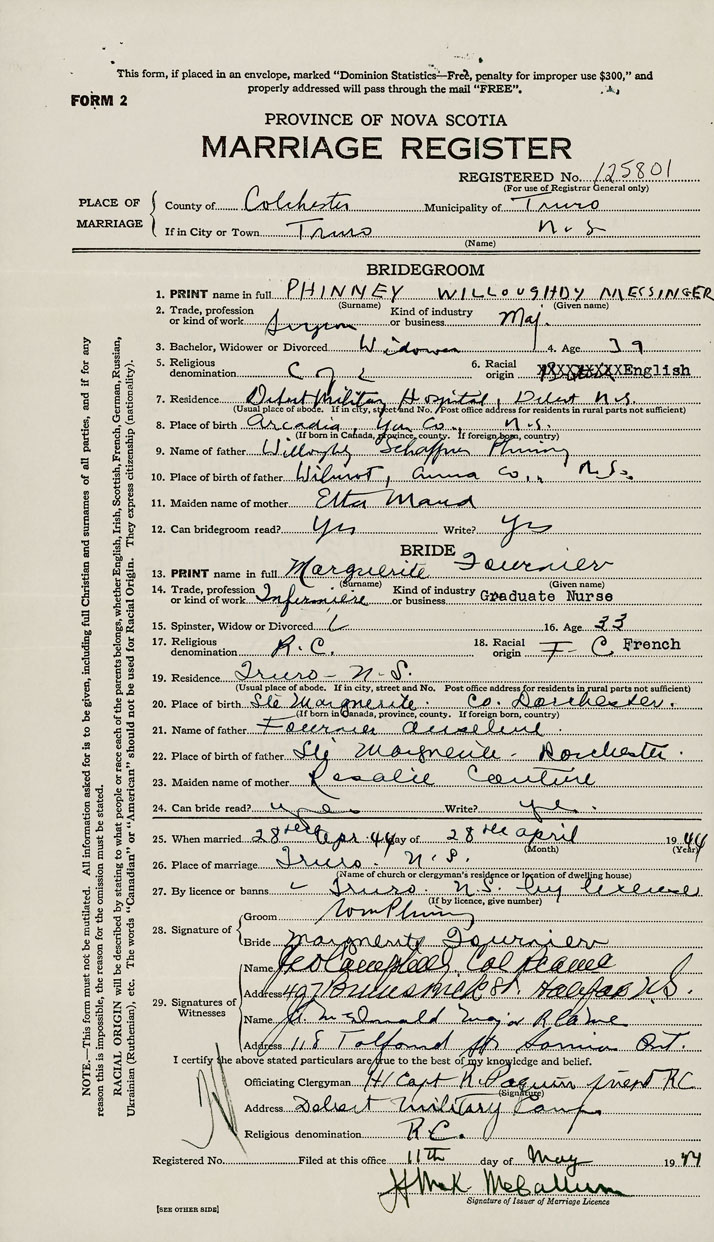 This form, if placed in an envelope, marked "Dominion Statistics—Free, penalty for improper use $300," and
properly addressed will pass through the mail "FREE".
FORM 2
PROVINCE OF NOVA SCOTIA
MARRIAGE REGISTER
REGISTERED No. 125801
(For use of Registrar General only)
PLACE OF MARRIAGE
County of Colchester Municipality of Truro
If in City or Town Truro N.S
(Name)
BRIDEGROOM
1. PRINT name in full PHINNEY WILLOUGHDY MESSINGER
(Surname) (Given name)
2. Trade, profession or kind of work Surgeon Kind of industry or business Maj.
3. Bachelor, Widower or Divorced Widower 4. Age 39
5. Religious denomination C of E 6. Racial origin English
7. Residence Debert Military Hospital, Debert N.S.
(Usual place of abode. If in city, street and No. Post office address for residents in rural parts not sufficient)
8. Place of birth Arcadia, Yar. Co., N.S.
(If born in Canada, province, county. If foreign born, country)
9. Name of father Willoughby Schaffner Phinney
10. Place of birth of father Wilmot, Anna Co., N.S.
11. Maiden name of mother Etta Maud
12. Can bridegroom read? Yes Write? Yes
BRIDE
13. PRINT name in full Marguerite Fournier
(Surname) (Given name)
14. Trade, profession or kind of work Infirmière Kind of industry or business Graduate Nurse
15. Spinster, Widow or Divorced 16. Age 33
17. Religious denomination R.C. 18. Racial origin F. C. French
19. Residence Truro - N.S.
(Usual place of abode. If in city, street and No. Post office address for residents in rural parts not sufficient)
20. Place of birth Ste Marguerite. Co. Dorchester.
(If born in Canada, province, county. If foreign born, country)
21. Name of father Fournier Anselme.
22. Place of birth of father Ste Marguerite - Dorchester.
23. Maiden name of mother Rosalie Couture
24. Can bride read? yes Write? yes.
25. When married 28 Apr. 44 day of 28 April 1944
(Month) (Year)
26. Place of marriage Truro. N.S.
(Name of church or clergyman's residence or location of dwelling house)
27. By licence or banns Truro. N.S. by licence
(If by licence, give number)
28. Signature of
Groom Wm Phinney
Bride Marguerite Fournier
29. Signatures of Witnesses
Name Campbell, Col
Address 497 Brunswick St. Halifax N.S.
Name McDonald Major
Address 118 Talfourd St Sarnia Ont.
I certify the above stated particulars are true to the best of my knowledge and belief.
Officiating Clergyman H/Capt R. Paquin priest RC
(Signature)
Address Debert Military Camp
Religious denomination R.C.
Registered No. Filed at this office 11th day of May 1944
McCallum
Signature of Issuer of Marriage Licence
[SEE OTHER SIDE]
NOTE.—This form must not be mutilated. All information asked for is to be given, including full Christian and surnames of all parties, and if for any
reason this is impossible, the reason for the omission must be stated.
RACIAL ORIGIN will be described by stating to what people or race each of the parents belongs, whether English, Irish, Scottish, French, German, Russian,
Ukrainian (Ruthenian), etc. The words "Canadian" or "American" should not be used for Racial Origin. They express citizenship (nationality).